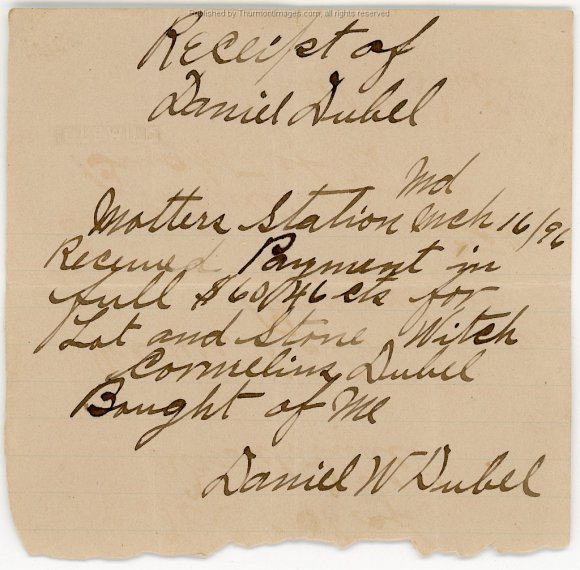 Published by Thurmontimages.com, all rights reserved
Receipt of
Daniel Dubel
Md
Motters Station Mch 16/96
Received Payment in
full $60/46 cts for
Lot and Stone Witch
Cornelius Dubel
Bought of Me
Daniel W Dubel